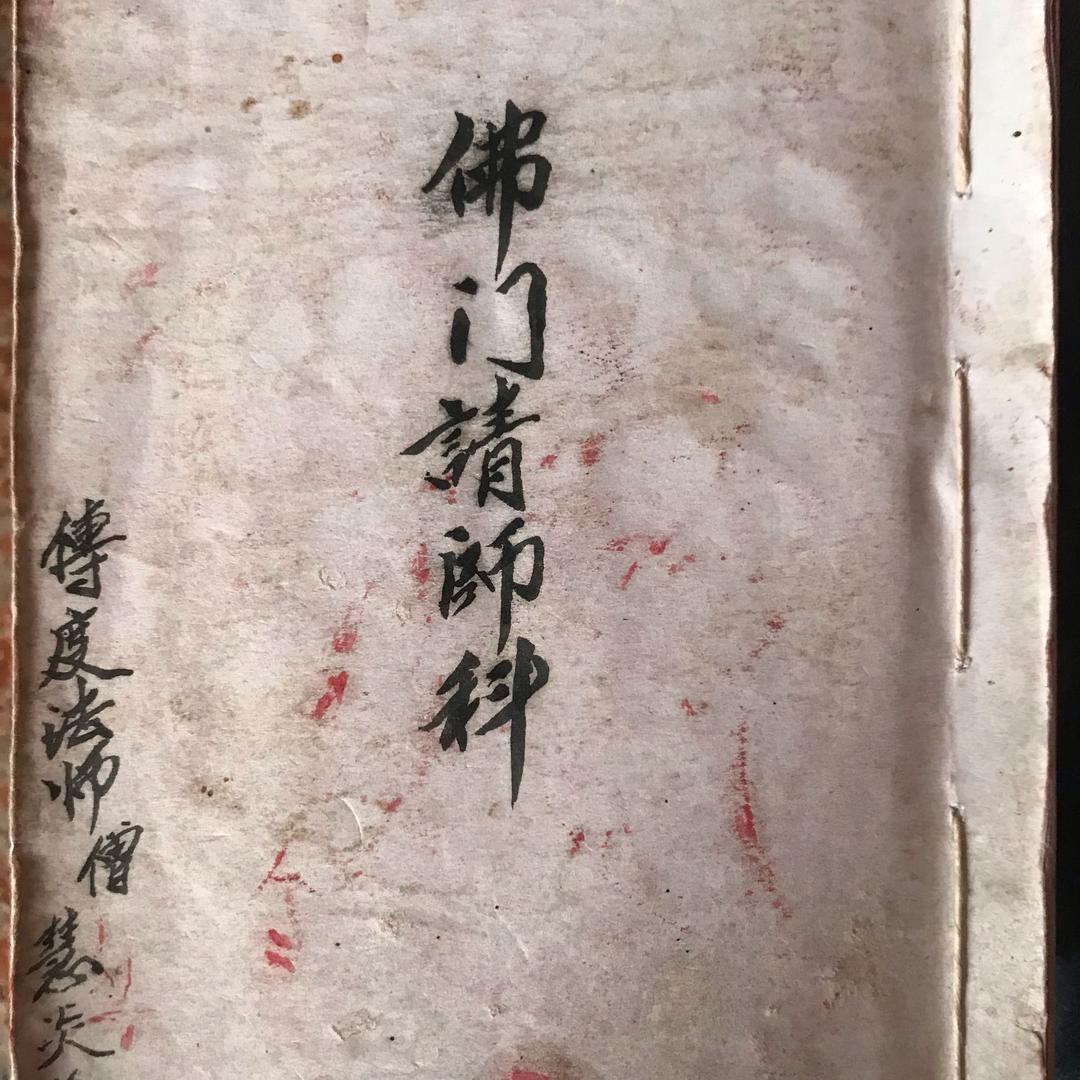 佛门請師科
傳度法师僧慧炎